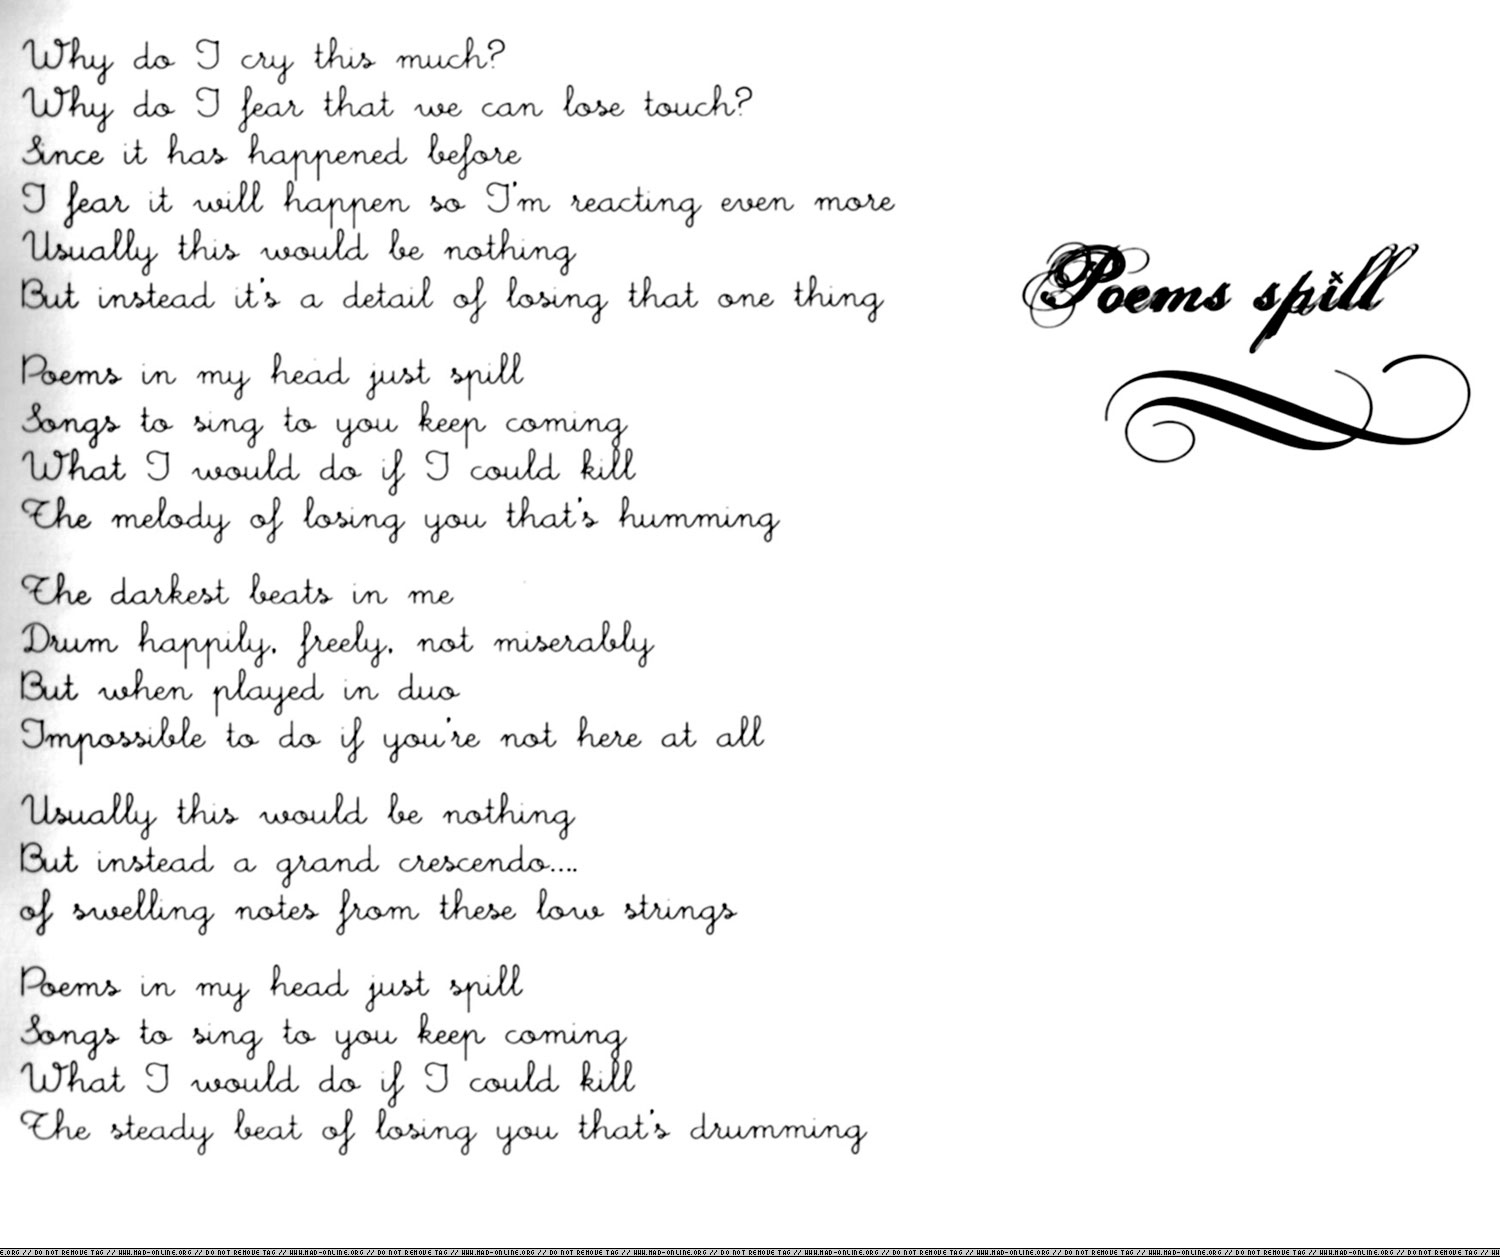 Why do I cry this much?
Why do I fear that we can lose touch?
Since it has happened before
I fear it will happen so I'm reacting even more
Usually this would be nothing
But instead it's a detail of losing that one thing
Poems spill
Poems in my head just spill
Songs to sing to you keep coming
What I would do if I could kill
The melody of losing you that's humming
The darkest beats in me
Drum happily, freely, not miserably
But when played in duo
Impossible to do if you're not here at all
Usually this would be nothing
But instead a grand crescendo....
of swelling notes from these low strings
Poems in my head just spill
Songs to sing to you keep coming
What I would do if I could kill
The steady beat of losing you that's drumming
E.ORG // DO NOT REMOVE TAG // WWW.MAD-ONLINE.ORG // DO NOT REMOVE TAG // WWW.MAD-ONLINE.ORG // DO NOT REMOVE TAG // WWW.MAD-ONLINE.ORG // DO NOT REMOVE TAG // WWW.MAD-ONLINE.ORG // DO NOT REMOVE TAG // WWW.MAD-ONLINE.ORG // DO NOT REMOVE TAG // WWW.MAD-ONLINE.ORG // DO NOT REMOVE TAG // WWW.MAD-ONLINE.ORG // DO NOT REMOVE TAG // WWW.MAD-ONLINE.ORG // DO NOT REMOVE TAG // WW